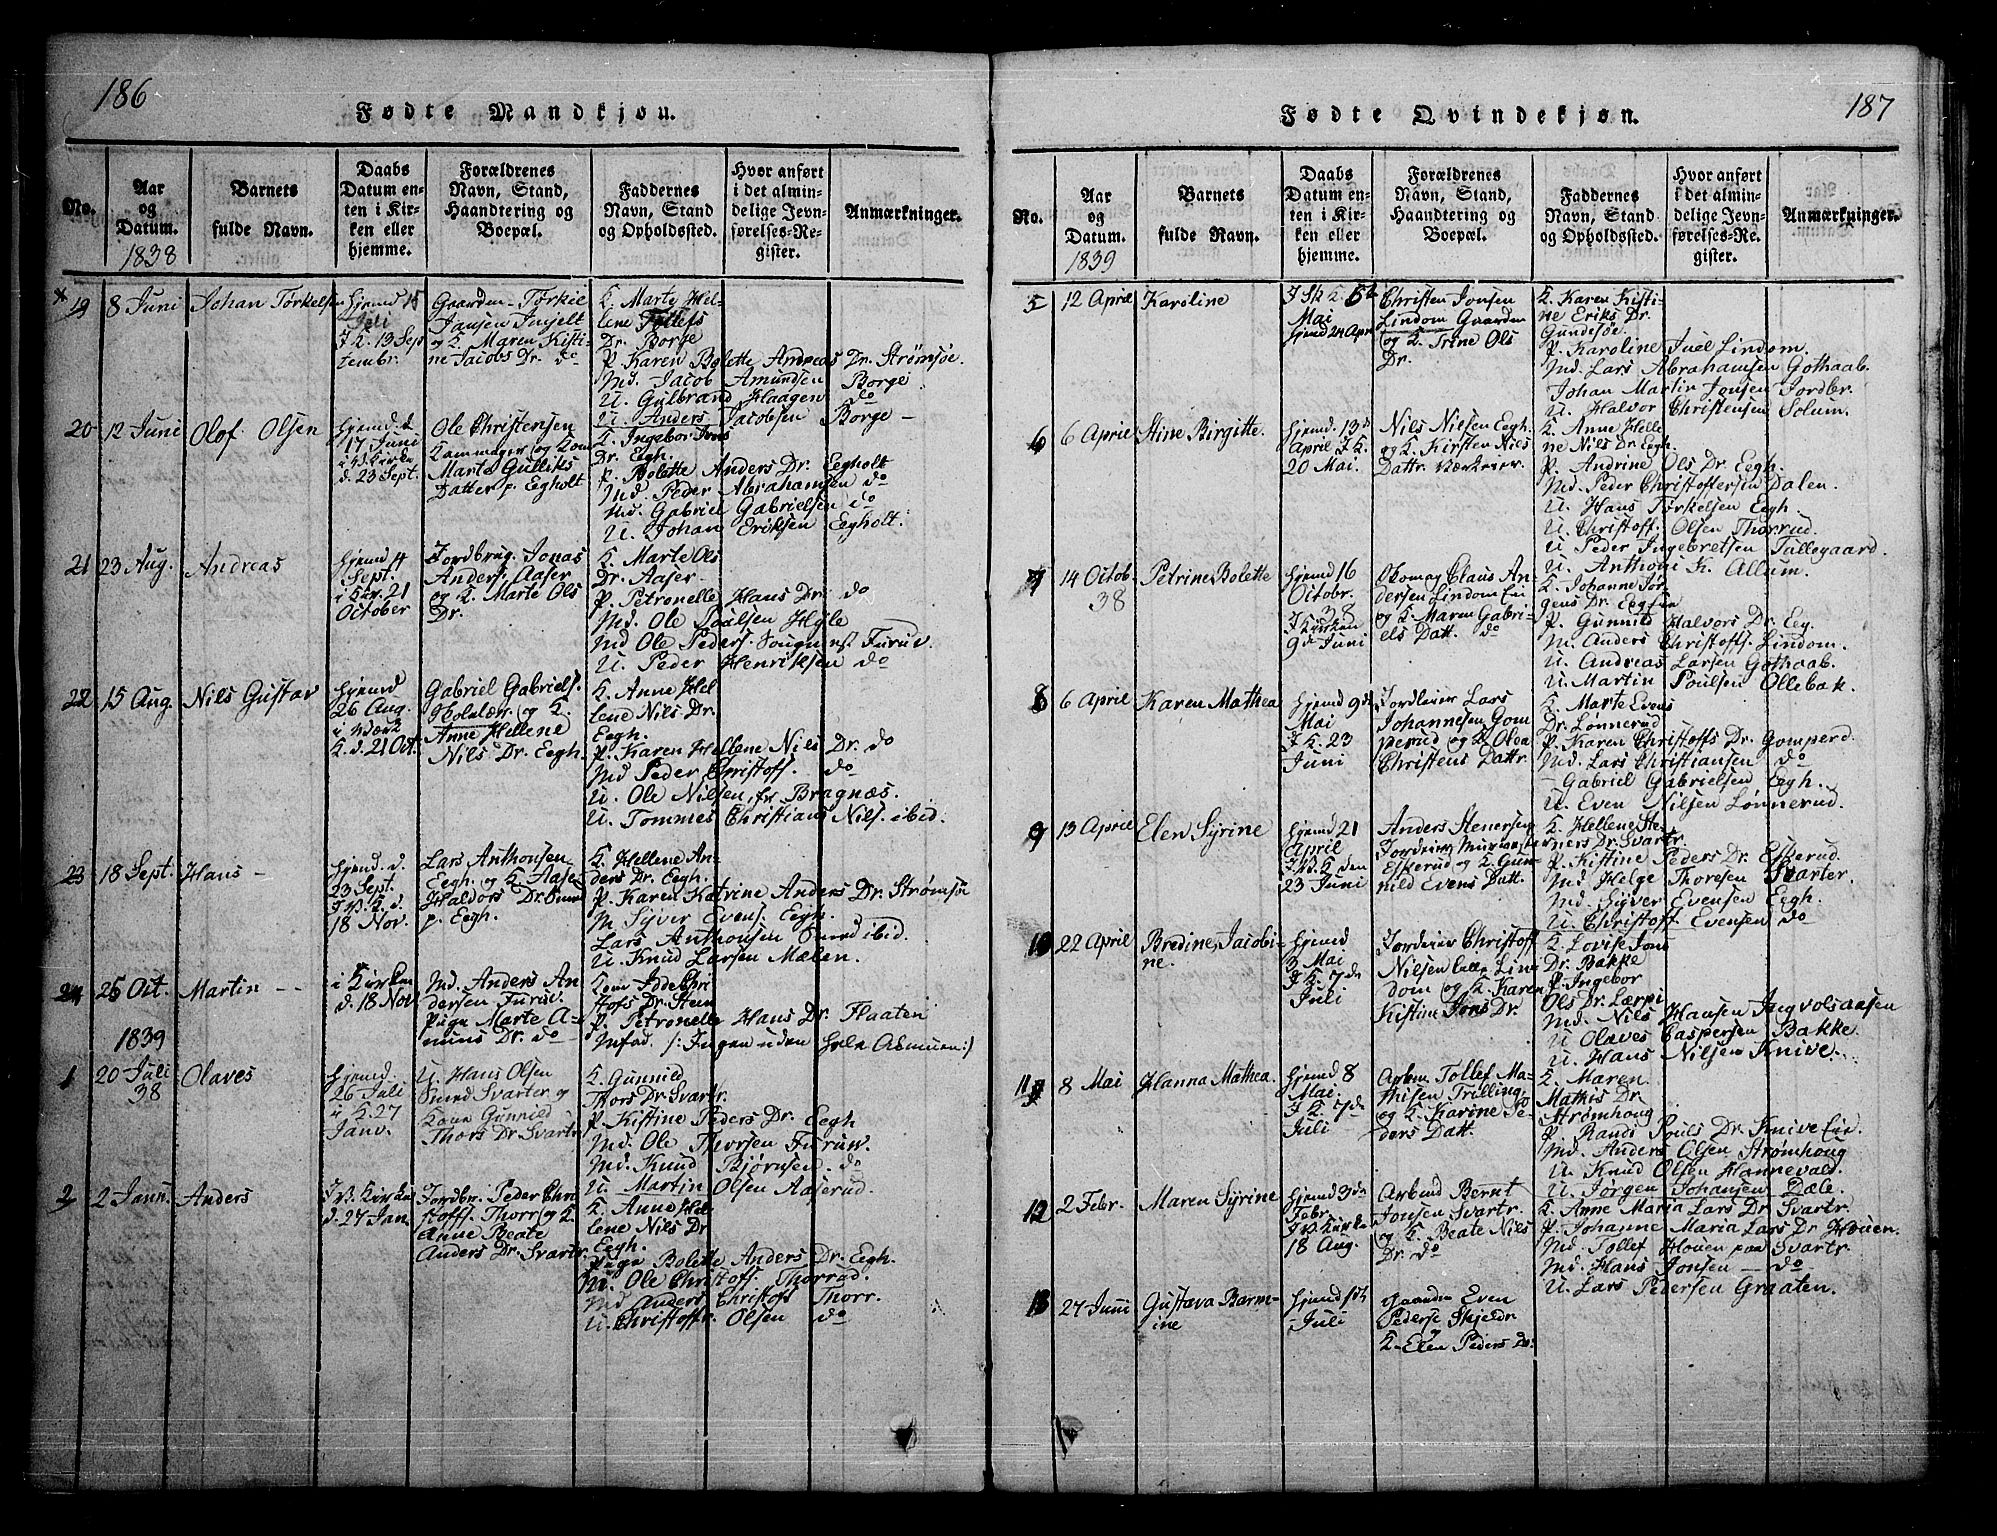 186
Fødte Mandkjøn.
No.
Aar
og
Datum.
1838
Barnets
fulde Navn.
Daabs
Datum en-
ten i Kir-
ken eller
hjemme.
Forældrenes
Navn, Stand,
Haandtering og
Boepæl.
Faddernes
Navn, Stand
og Opholdssted.
Hvor anført
i det almin-
delige Jevn-
førelses-Re-
gister.
Anmærkninger.
19
8 Juni
Johan Torkelsen
hjemd 15
Juli
I K. 13 Sep
tembr.
Gaarden Torkil
Jansen Injelt
og K. Maren Kisti-
ne Jacobs Dr. do
K. Marte Hel-
lene Tollefs
Dr. Borge
P. Karen Bolette Andreas Dr. Strømsøe
Md. Jacob Amundsen Borge
U. Gulbrand Haagen do
U. Anders Jacobsen Borge -
20
12 Juni
Olof Olsen
hjemd d
17 Juni
i Kirke
d. 23 Sept.
Ole Christensen
Kammager og Kon
Marte Gulliks
Datter p. Egholt
K. Ingebor Jons
Dr. Egh.
P. Bolette Anders Dr. Eegholt
Md. Peder Abrahamsen do
Md. Gabriel Gabrielsen do
U. Johan Eriksen Eegholt.
21
23 Aug.
Andreas
hjemd 4
Sept.
i Kir. 21
October
Jordbrug. Jonas
Anders. Aaser
og K. Marte Ols
Dr.
K. Marte Ols
Dr. Aaser
P. Petronelle Hans Dr. do
Md. Ole Poulsen Hyle
Md Ole Peders. Furuv.
U. Peder Henriksen do
22
15 Aug.
Nils Gustav
hjemd
26 Aug.
K. d. 21 Oct.
Gabriel Gabriels.
og K.
Anne Hellene
Nils Dr. Eegh.
K. Anne Hel
lene Nils Dr.
Eegh.
P. Karen Hellene Nils Dr. do
Md Peder Christoff. do
U. Ole Nilsen fr. Bragnæs.
U. Tommes Christians Nils. ibid.
23
18 Sept.
Hans -
hjemd. d.
23 Sept.
I K. d.
18 Nov.
Lars Anthonsen
Eegh. og K. Aase
Haldors Dr.
p. Eegh.
K. Hellene An-
ders Dr. Eegh.
P. Karen Katrine Anders Dr. Strømsøe
M Syver Evens. Eegh.
Lars Anthonsen Smed ibid.
U. Knud Larsen Mælen.
24
25 Oct.
Martin - -
i Kirken
d. 18 Nov
Md. Anders An
dersen Furuv.
Piga Marte A-
muns Dr. do
Kon
tofs Dr. Steen
P. Petronelle Hans Dr. Flaaten
1839
1
20 Juli
38
Olaves
hjemd.
26 Juli
i K. 27
Janv.
U. Hans Olsen
Smed Svarter og
Kone Gunnild
Thors Dr. Svartr
K. Gunnild
Thors Dr. Svartr.
P. Kistine Peders Dr. Eegh
Md. Ole Thorsen Furuv.
Md. Knud Bjørnsen. do
U. Martin Olsen Aaserud.
2
2 Jann.
Anders
I Kirke
d. 27 Jan.
Jordbr. Peder Chri
stoff. Thorr. og K
Anne Beate
Anders Dr. Svartr.
K. Anne Hel
lene Nils Dr
Eegh.
Piga Bolette Anders Dr. Eegh.
M. Ole Christoff. Thorrud.
Md Anders Christoff Thorr.
U. Christoffr. Olsen do
187
Fødte Qvindekjøn.
No.
Aar
og
Datum.
1839
Barnets
fulde Navn.
Daabs
Datum en-
ten i Kir-
ken eller
hjemme.
Forældrenes
Navn, Stand,
Haandtering og
Boepæl.
Faddernes
Navn, Stand
og Opholdssted.
Hvor anført
i det almin-
delige Jevn-
førelses-Re-
gister.
Anmærkninger.
5
12 April
Karoline
Mai
hjemd 24 Apr
Christen Jonsen
Lindom Gaarden
og K. Trine Ols
Dr.
K. Karen Kisti-
ne Eriks Dr.
Gundesøe.
P. Karoline Juel Lindom
Md. Lars Abrahamsen Gothaab.
Johan Martin Jonsen Jordbr.
U. Halvor Christensen Solum.
6
6 April
Stine Birgitte.
hjemd. 13 d
April I K.
20 Mai.
Nils Nilsen Eegh.
og K. Kirsten Nils
Dattr.
K. Anne Helle
ne Nils Dr. Eegh.
P. Andrine Ols Dr. Eegh.
Md. Peder Christoffersen Dalen.
U. Hans Torkelsen Eegh.
U. Christoff. Olsen Thorrud.
U. Peder Ingebretsen Tallegaard.
U. Anthoni K. Allum.
7
14 Octob.
38
Petrine Bolette
hjemd 16
Octobr.
38
I Kirken
9 d Juni
Claus An
dersen Lindom Eie
og K. Maren Gabri-
els Datt. do
K. Johanne Jør
gens Dr. Eeg
P. Gunnild Halvors Dr. Eeg.
M. Anders Christoffs. Lindom.
U. Andreas Larsen Gothaab.
U. Martin Poulsen Ollebak.
8
6 April
Karen Mathea
hjemd 9 d
Mai
I K. 23
Juni
Jordleier Lars
Johannesen Gom
perud og K. Olea
Christens Dattr.
K. Marte Evens
Dr. Lønnerud
P. Karen Christoffs Dr. Gomperd
Md. Lars Christiansen do
- Gabriel Gabrielsen Eegh.
U. Even Nilsen Lønnerud.
9
13 April
Elen Syrine
hjemd 21
April
I K den
23 Juni
Anders Stenersen
Eskerud og K. Gun-
nild Evens Datt.
K. Hellene Ste-
ners Dr. Svartr.
P. Kistine Peders Dr. Eskerud.
Md. Helge Thoresen Svarter.
Md. Syver Evensen Eegh.
U. Christoff Evensen do
10
22 April
Bredine Jacobi-
ne.
hjemd
3 Mai
I K. 7 de
Juli
Jordeier Christoff
Nilsen Lille Lin
dom og K. Karen
Kistine Jons Dr.
K. Lovise Jons
Dr. Bakke
P. Ingebor
Ols Dr. Lærpi
Md. Nils Hansen Ingvolsaasen
U. Olaves Caspersen Bakke.
U. Hans Nilsen Knive.
11
8 Mai
Hanna Mathea.
hjemd 8
Mai
I K. 7 de
Juli
Arbm. Tollef Ma-
thisen Trilling
og K. Karine Pe
ders Datt.
K. Maren
Mathis Dr
Strømhoug
P. Randi Pouls Dr. Knive Eie.
Md. Anders Olsen Strømhoug
U. Knud Olsen Hannevald.
U. Jørgen Johansen Dæle.
12
2 Febr.
Maren Syrine
hjemd 3 de
Febr.
I Kirke
18 Aug.
Arbmd Bernt
Jonsen Svartr.
og K. Beate Nils
Dr. do
K. Anne Maria Lars Dr Svartr.
P. Johanne Maria Lars Dr Houen.
Md. Tollef Houen paa Svartr.
Md. Hans Jonsen - do
U. Lars Pedersen Graaten.
13
27 Juni
Gustava Barm-
ine
Juli
Gaardm Even
Pederse Skjeldr
K. Elen Peders do.